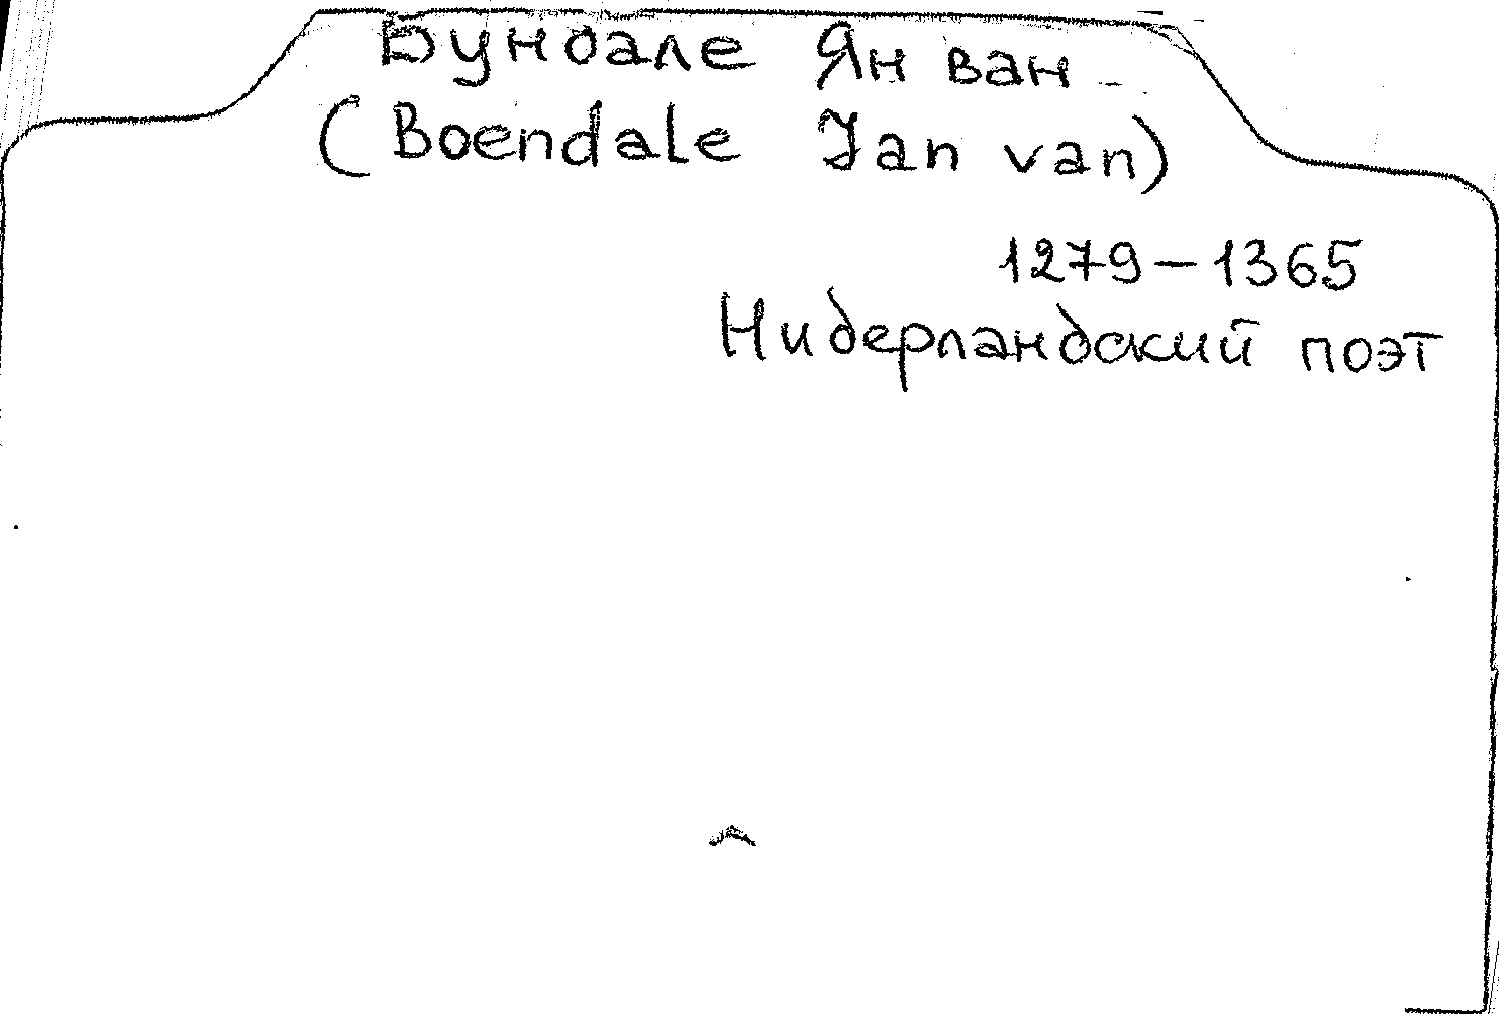 Бундале Ян ван
(Boendale Jan van)
1279-1365
Нидерландский поэт